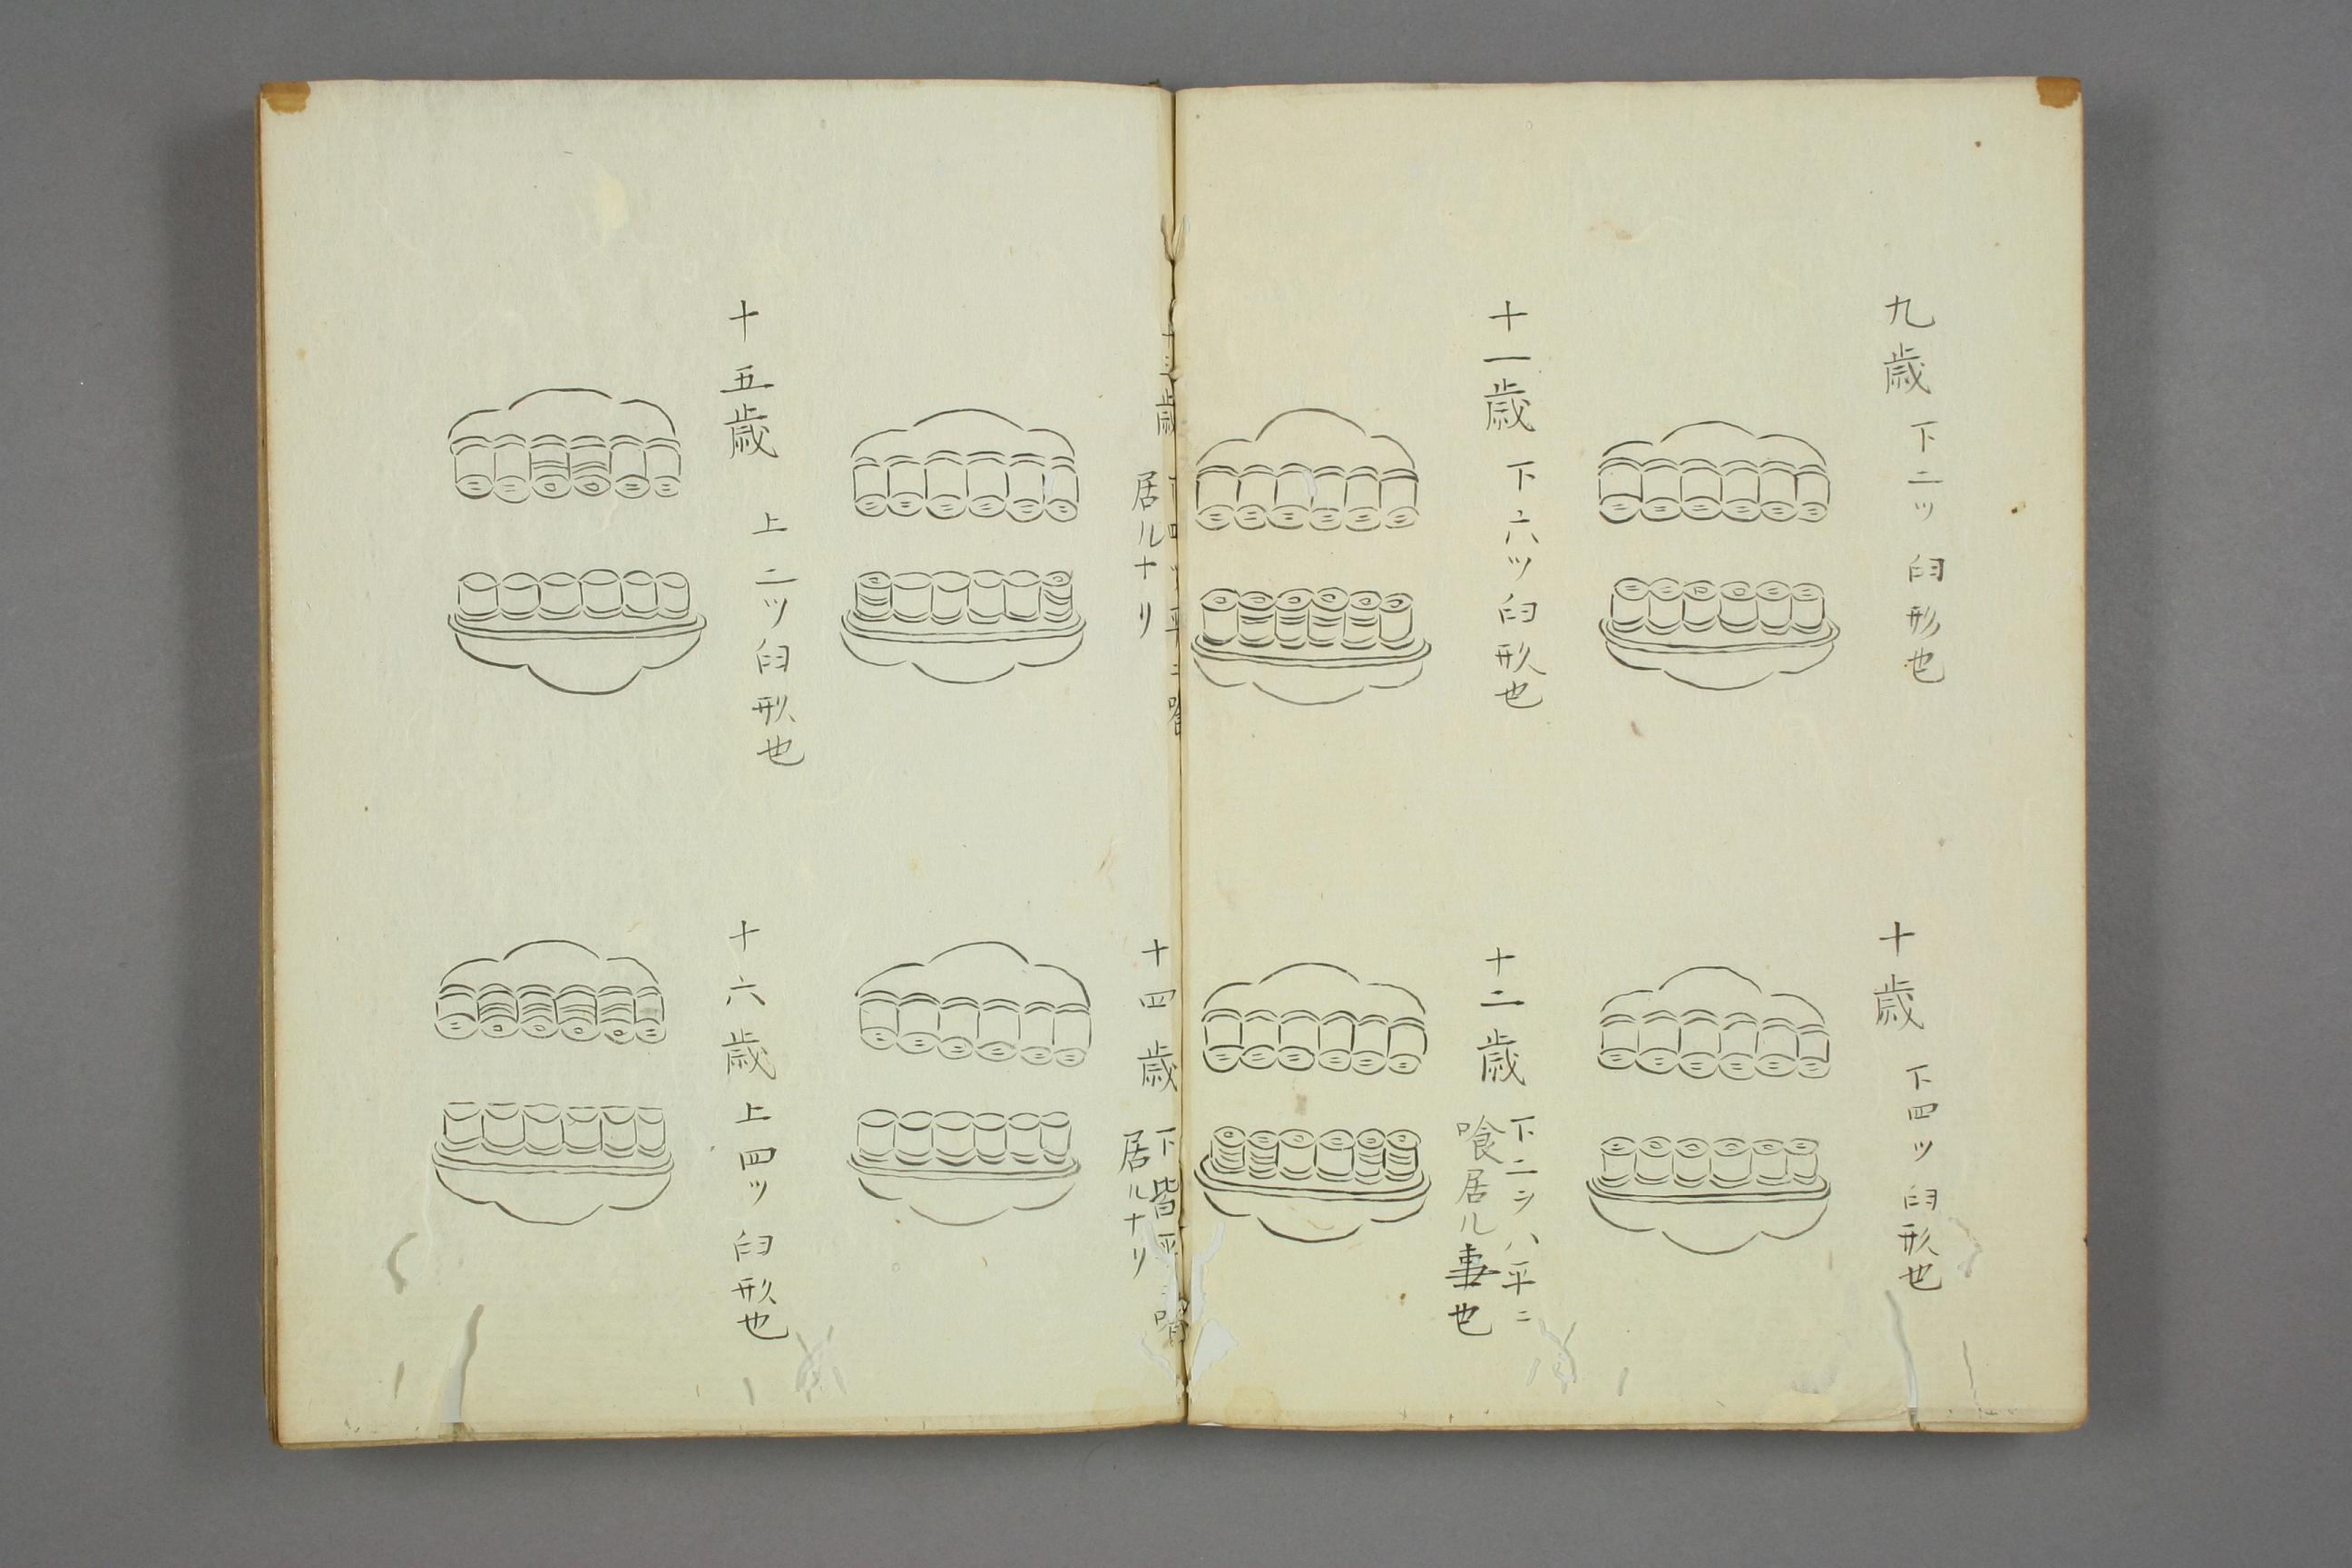 九歳 下二ツ臼形也
十歳 下四ツ臼形也
十一歳 下六ツ臼形也
十二歳 下二ツハ平ニ
喰居ル事也
十三歳 下四ツ平ニ喰
居ルナリ
十四歳 下皆平ニ喰
居ルナリ
十五歳 上二ツ臼形也
十六歳 上四ツ臼形也